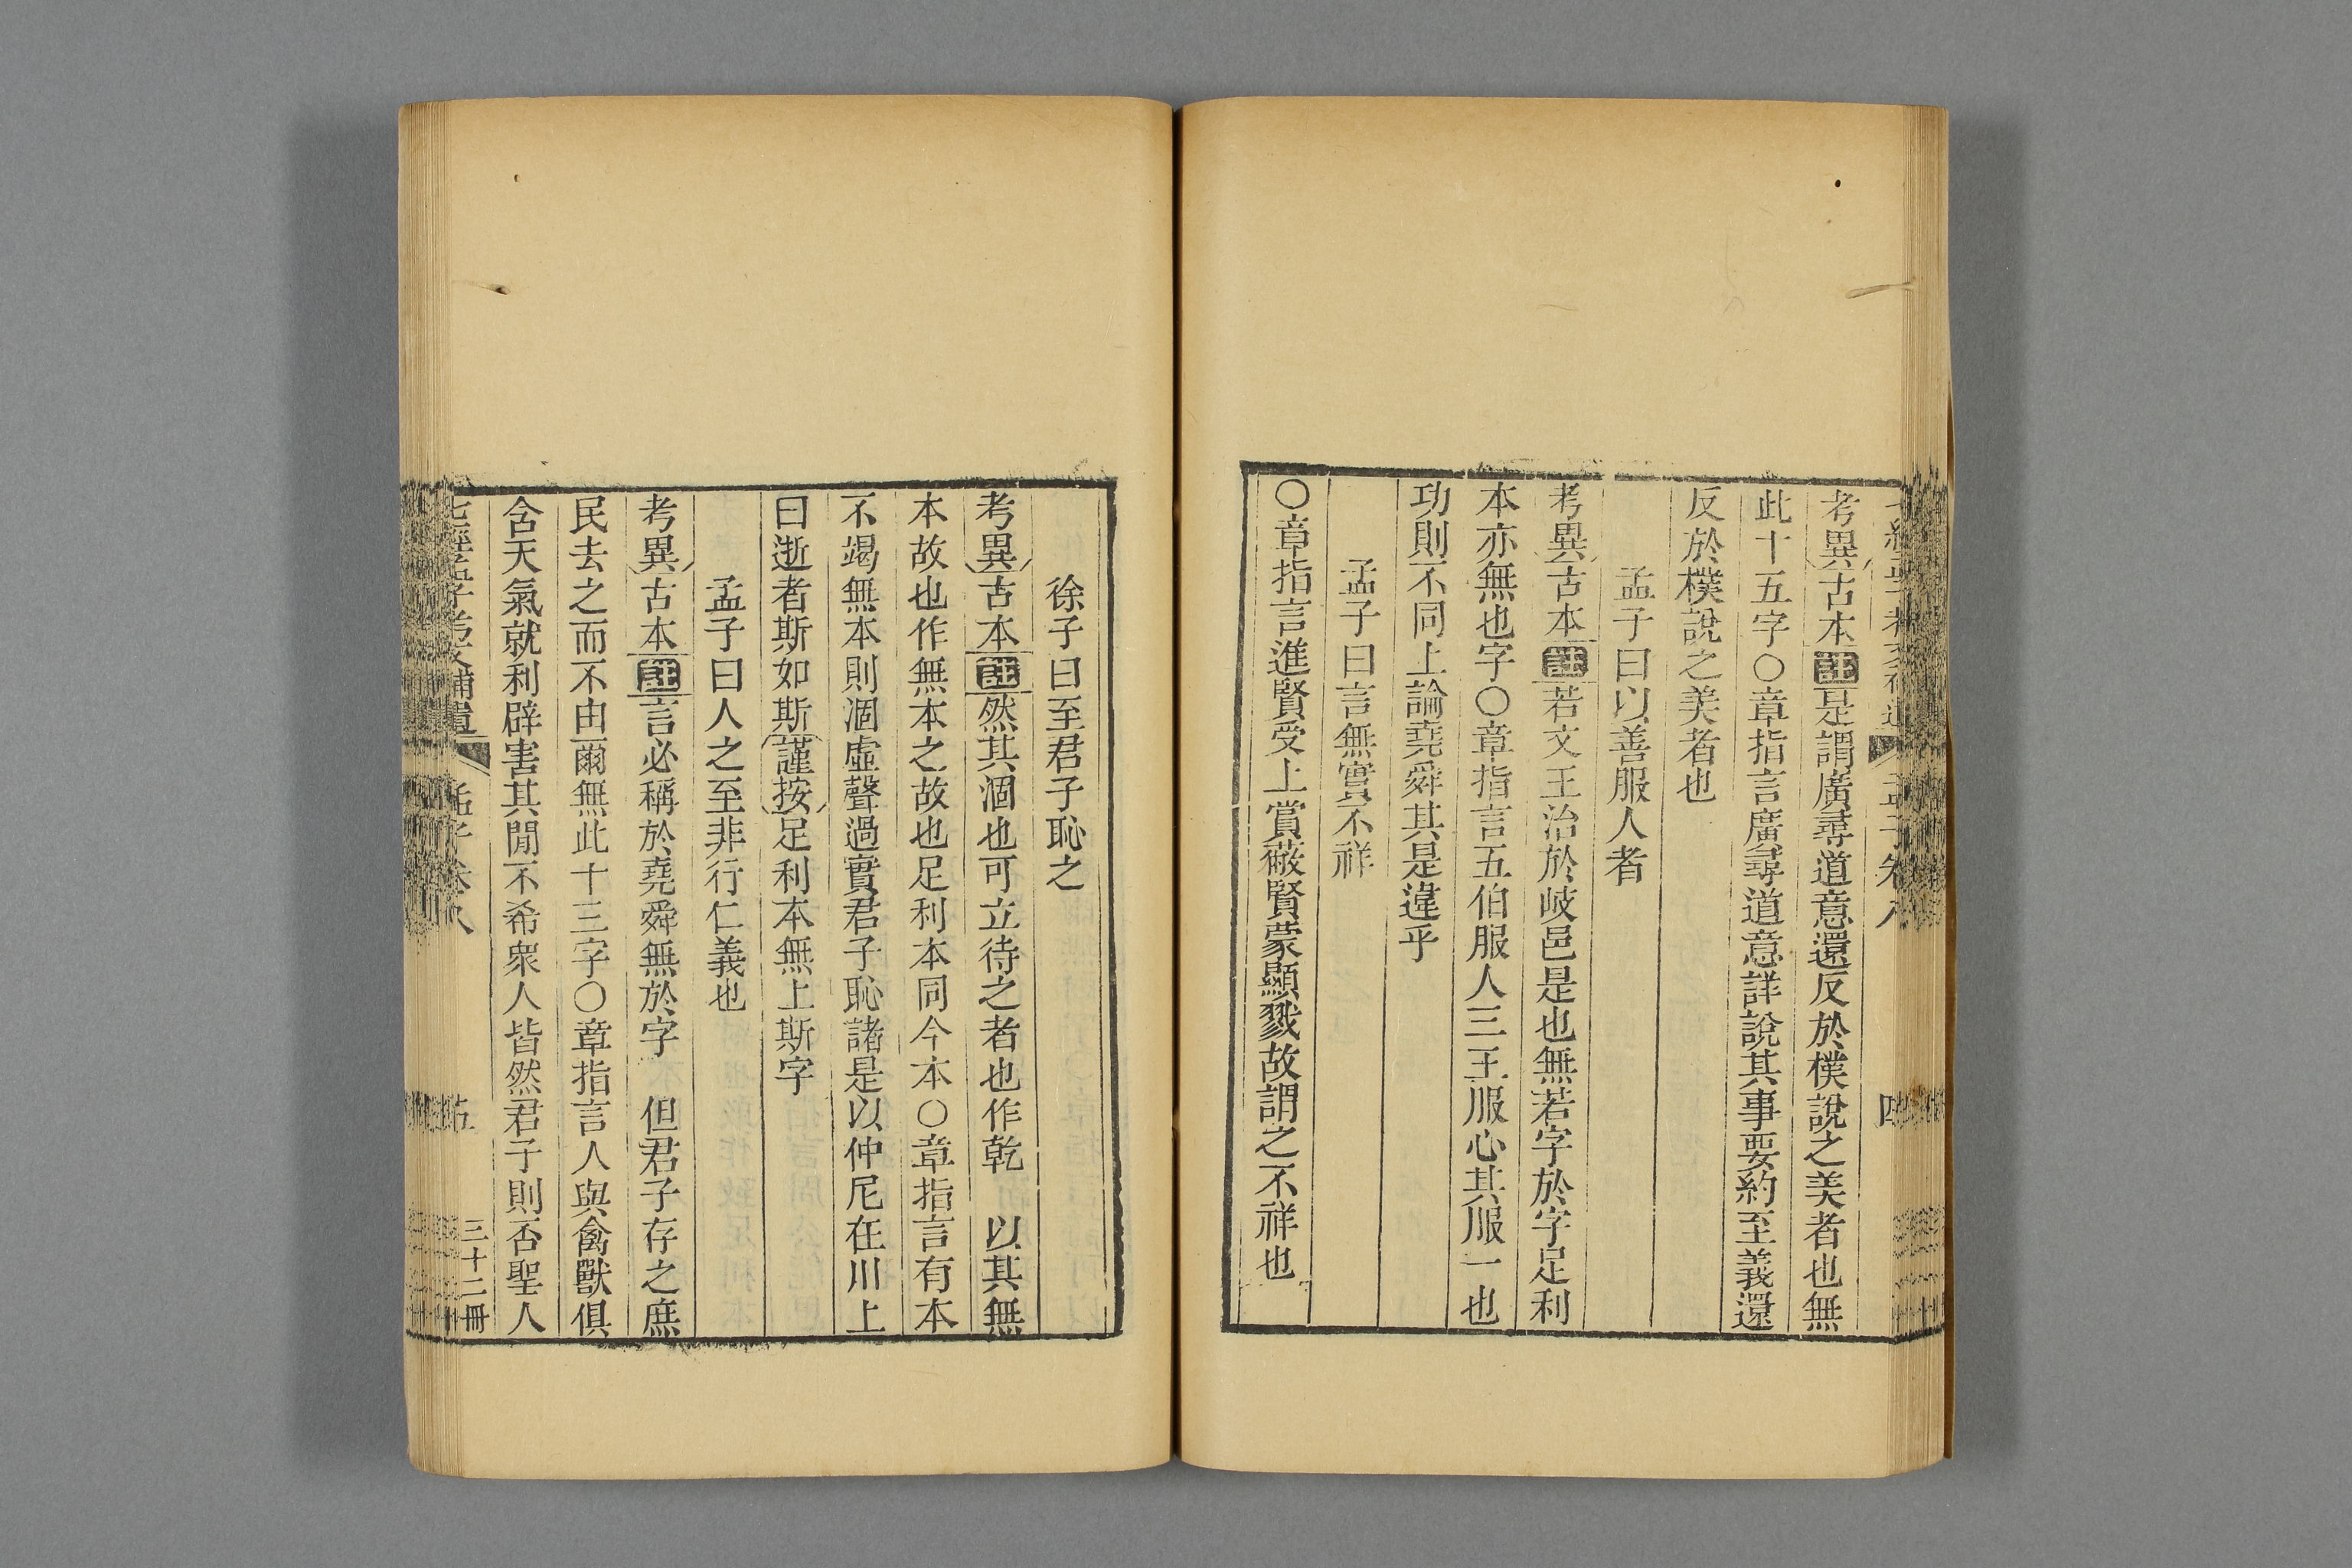 考異古本註是謂廣尋道意還反於樸說之美者也無
此十五字○章指言廣尋道意詳說其事要約至義還
反於樸說之美者也
孟子曰以善服人者
考異古本註若文王治於岐邑是也無若字於字足利
本亦無也字○章指言五伯服人三王服心其服一也
功則不同上論堯舜其是違乎
孟子曰言無實不祥
○章指言進賢受上賞蔽賢蒙顯戮故謂之不祥也
徐子曰至君子恥之
考異古本註然其涸也可立待之者也作乾　以其無
本故也作無本之故也足利本同今本○章指言有本
不竭無本則涸虛聲過實君子恥諸是以仲尼在川上
曰逝者斯如斯謹按足利本無上斯字
孟子曰人之至非行仁義也
考異古本註言必稱於堯舜無於字　但君子存之庶
民去之而不由爾無此十三字○章指言人與禽獸俱
含天氣就利辟害其閒不希衆人皆然君子則否聖人
七經孟子考文補遺　孟子卷八　五　三十二冊